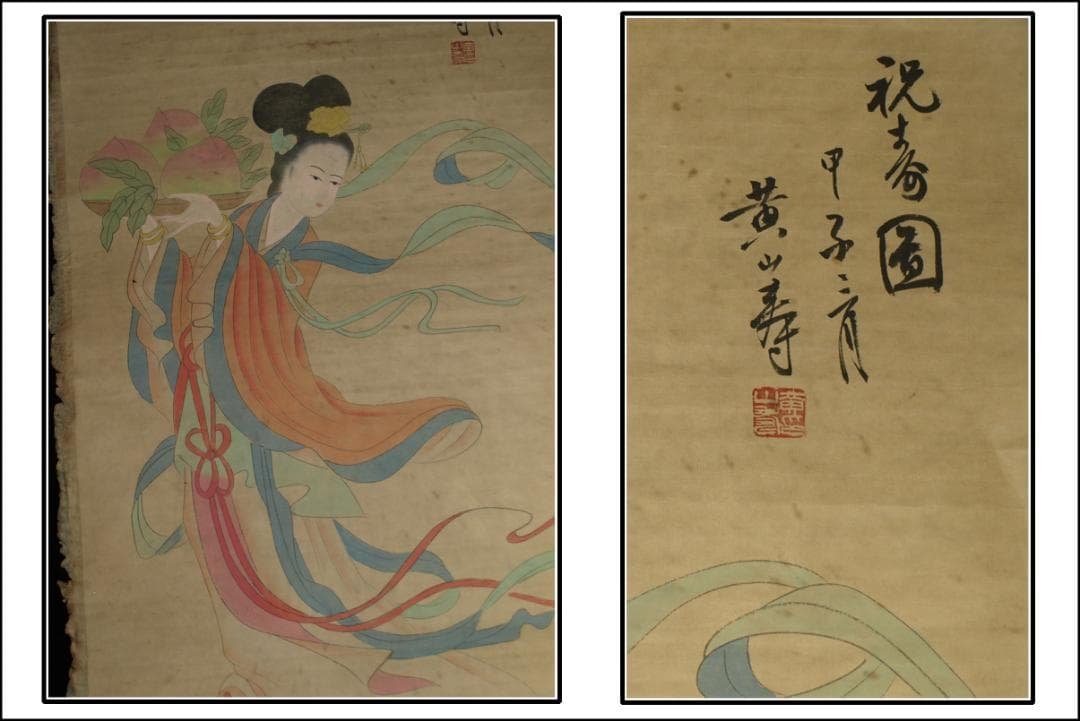 祝寿圖
甲子二月
黄山寿